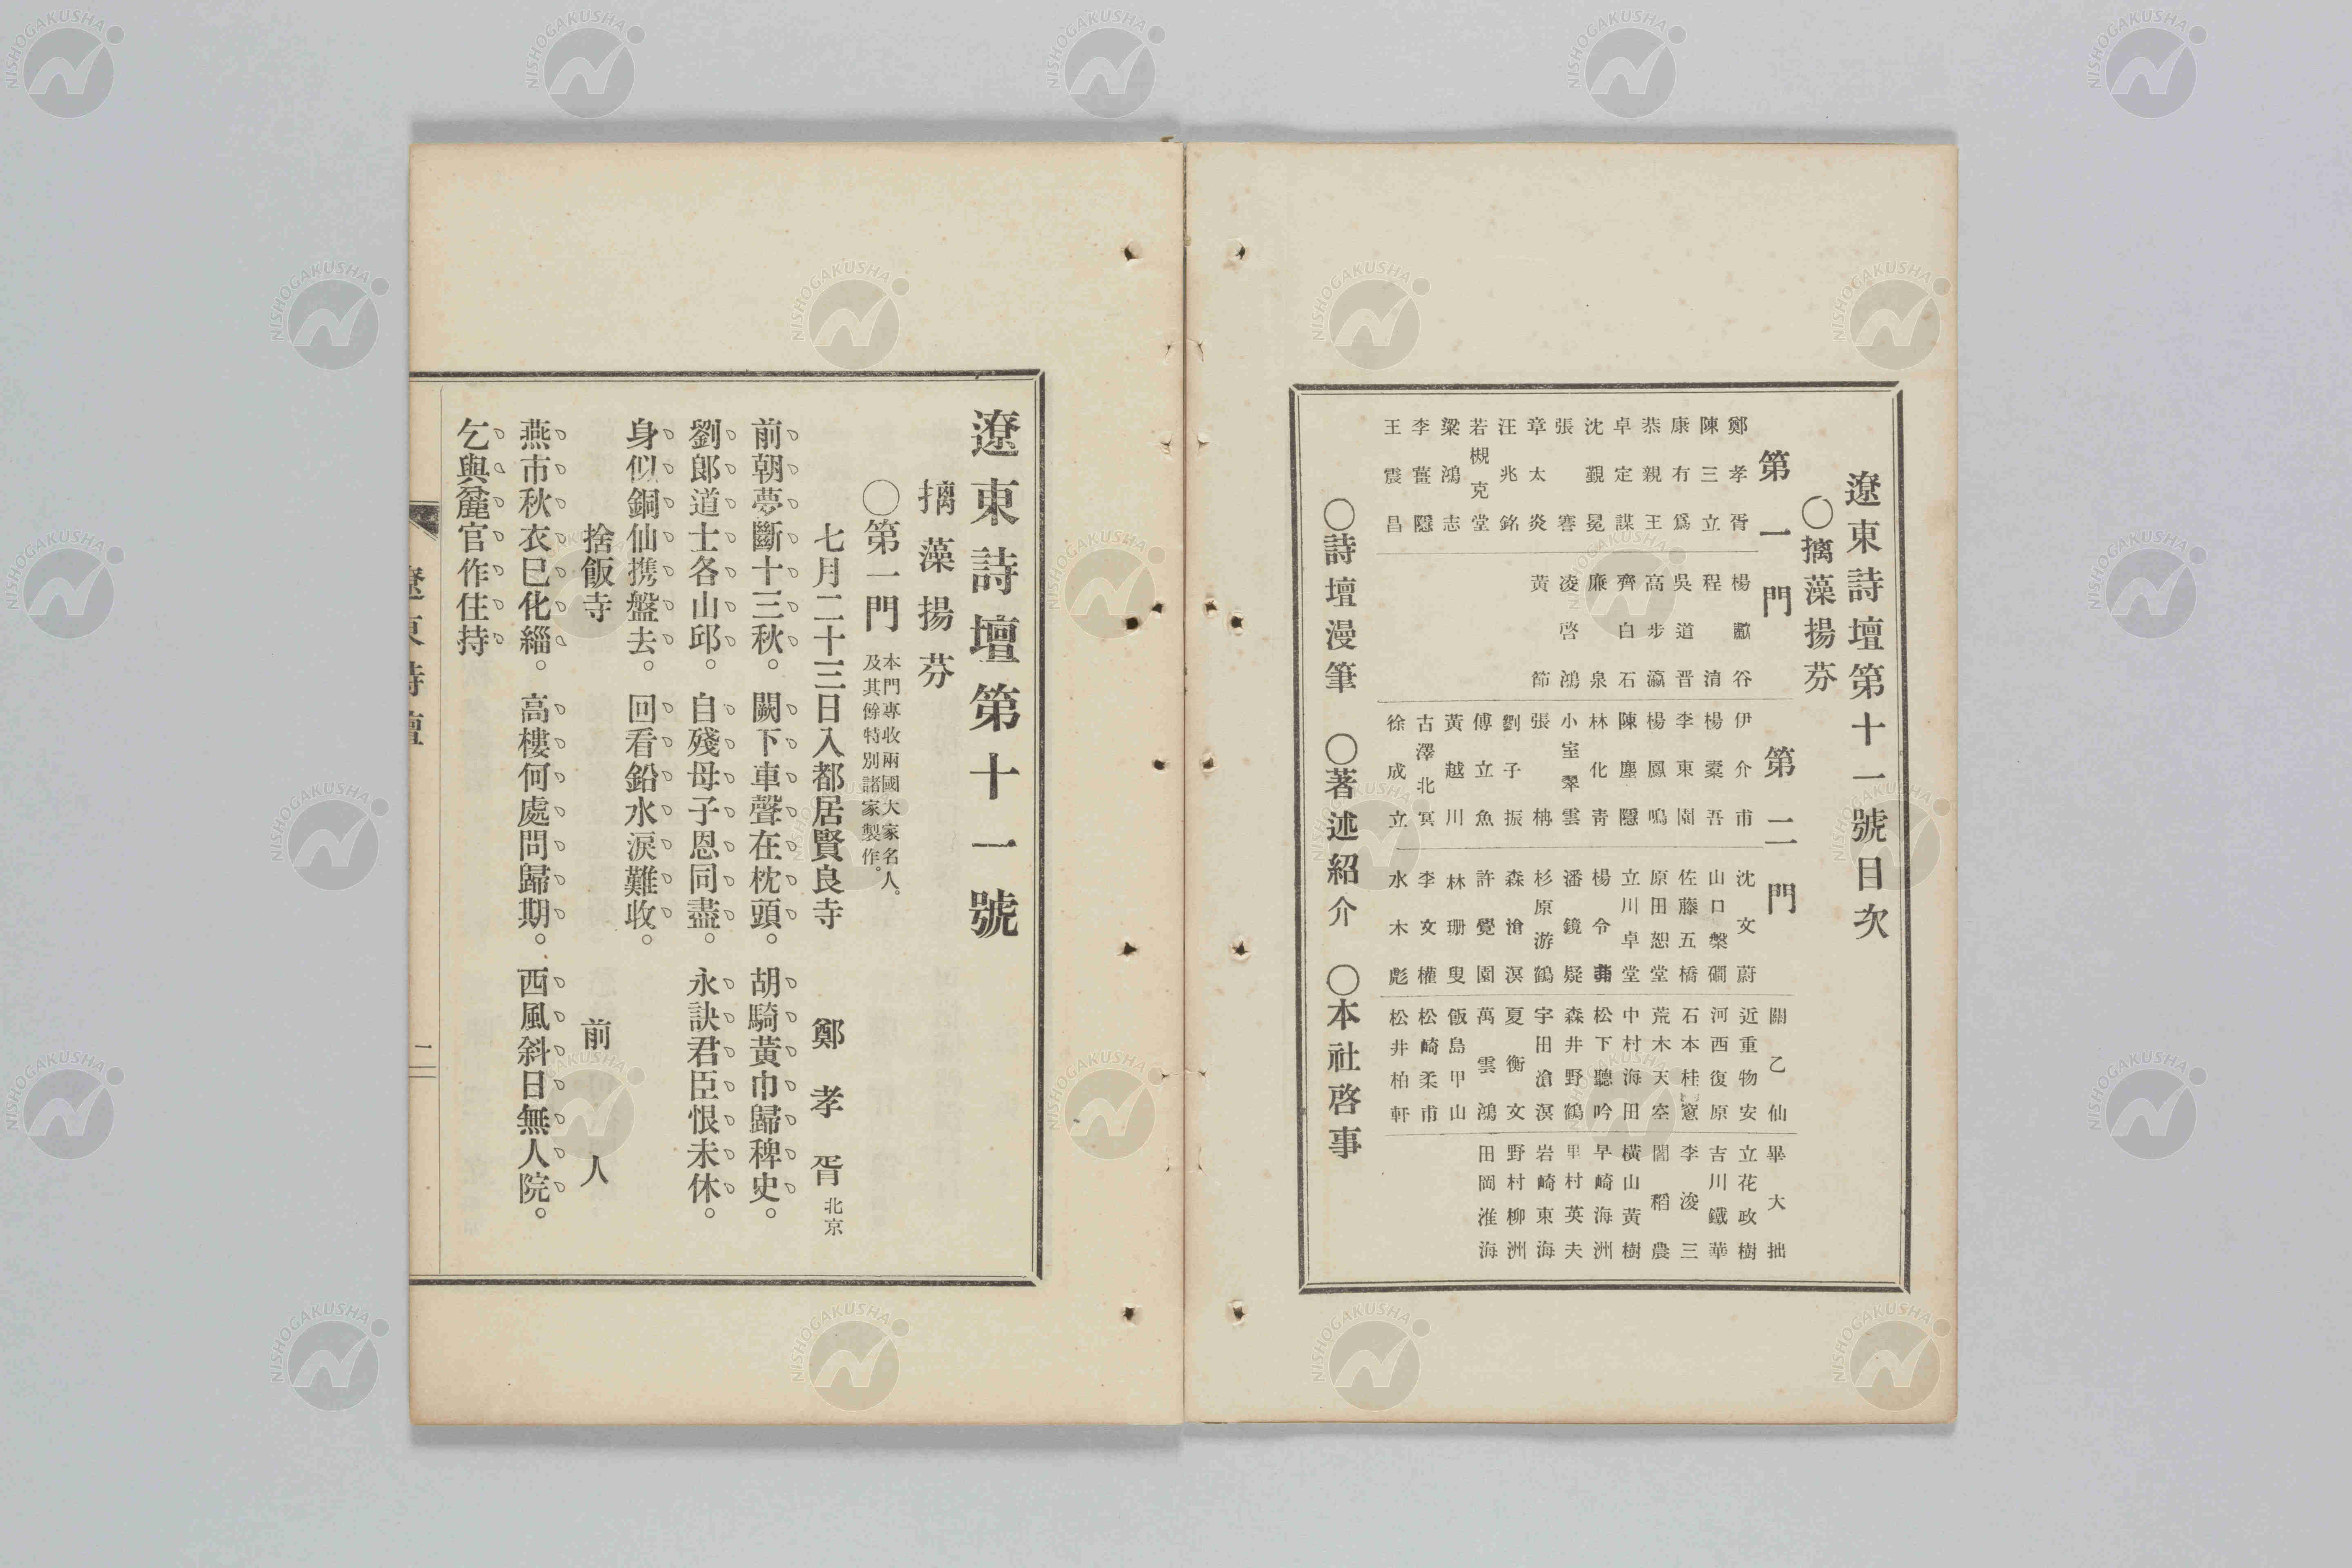 遼東詩壇第十一號目次
○摛藻揚芬
第一門
鄭孝胥
陳三立
康有爲
恭親王
卓定謀
沈覲冕
張謇
章太炎
汪兆銘
若槻克堂
梁鴻志
李薑隱
王震昌
楊歗谷
程淯
吳道晋
高步瀛
齊白石
廉泉
凌啓鴻
黃節
第二門
伊介甫
楊槖吾
李東園
楊鳳鳴
陳塵隱
林化青
小室翠雲
張梅
劉子振
傅立魚
黃越川
古澤北冥
徐成立
沈文蔚
山口槃礀
佐藤五橋
原田恕堂
立川卓堂
楊令茀
潘鏡疑
杉原游鶴
森滄溟
許覺園
林珊叟
李文權
水木彪
關乙仙
近重物安
河西復原
石本桂窓
荒木天空
中村海田
松下聽吟
森井野鶴
宇田滄溟
夏衡文
萬雲鴻
飯島甲山
松崎柔甫
松井柏軒
畢大拙
立花政樹
吉川鐵華
李浚三
閻稻農
橫山黃樹
早崎海洲
里村英夫
岩崎東海
野村柳洲
田岡淮海
○詩壇漫筆　○著述紹介　○本社啓事
遼東詩壇第十一號
摛藻揚芬
○第一門 本門專收兩國大家名人。
及其餘特別諸家製作。
七月二十三日入都居賢良寺　鄭孝胥 北京
前朝夢斷十三秋。闕下車聲在枕頭。胡騎黃巾歸稗史。
劉郎道士各山邱。自殘母子恩同盡。永訣君臣恨未休。
身似銅仙携盤去。回看鉛水淚難收。
捨飯寺　前人
燕市秋衣巳化緇。高樓何處問歸期。西風斜日無人院。
乞與麤官作住持
遼東詩壇
二
NISHOGAKUSHA